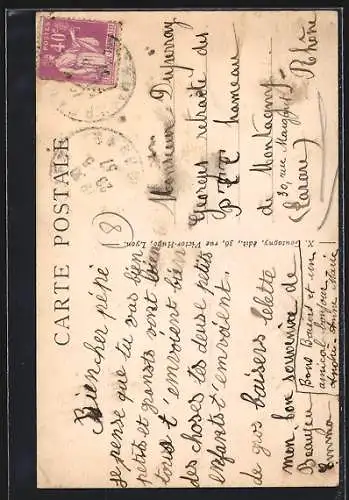 CARTE POSTALE
POSTES
40c
(8)
Bien cher pépé
je pense que tu vas bien
petits et grands vont bien
tous t'émerient bien
des choses les deuse petits
enfants t'envoient.
de gros baisers lelette
mon bon souvenire de
Beaujeu
Emma
Bons Baisers et un
amical bonjour
André Anne Marie
X. Goutagny, édit., 36, rue Victor-Hugo, Lyon.
Monsieur
retraité des
PTT hameau
de Montagny
30, rue
Rhône